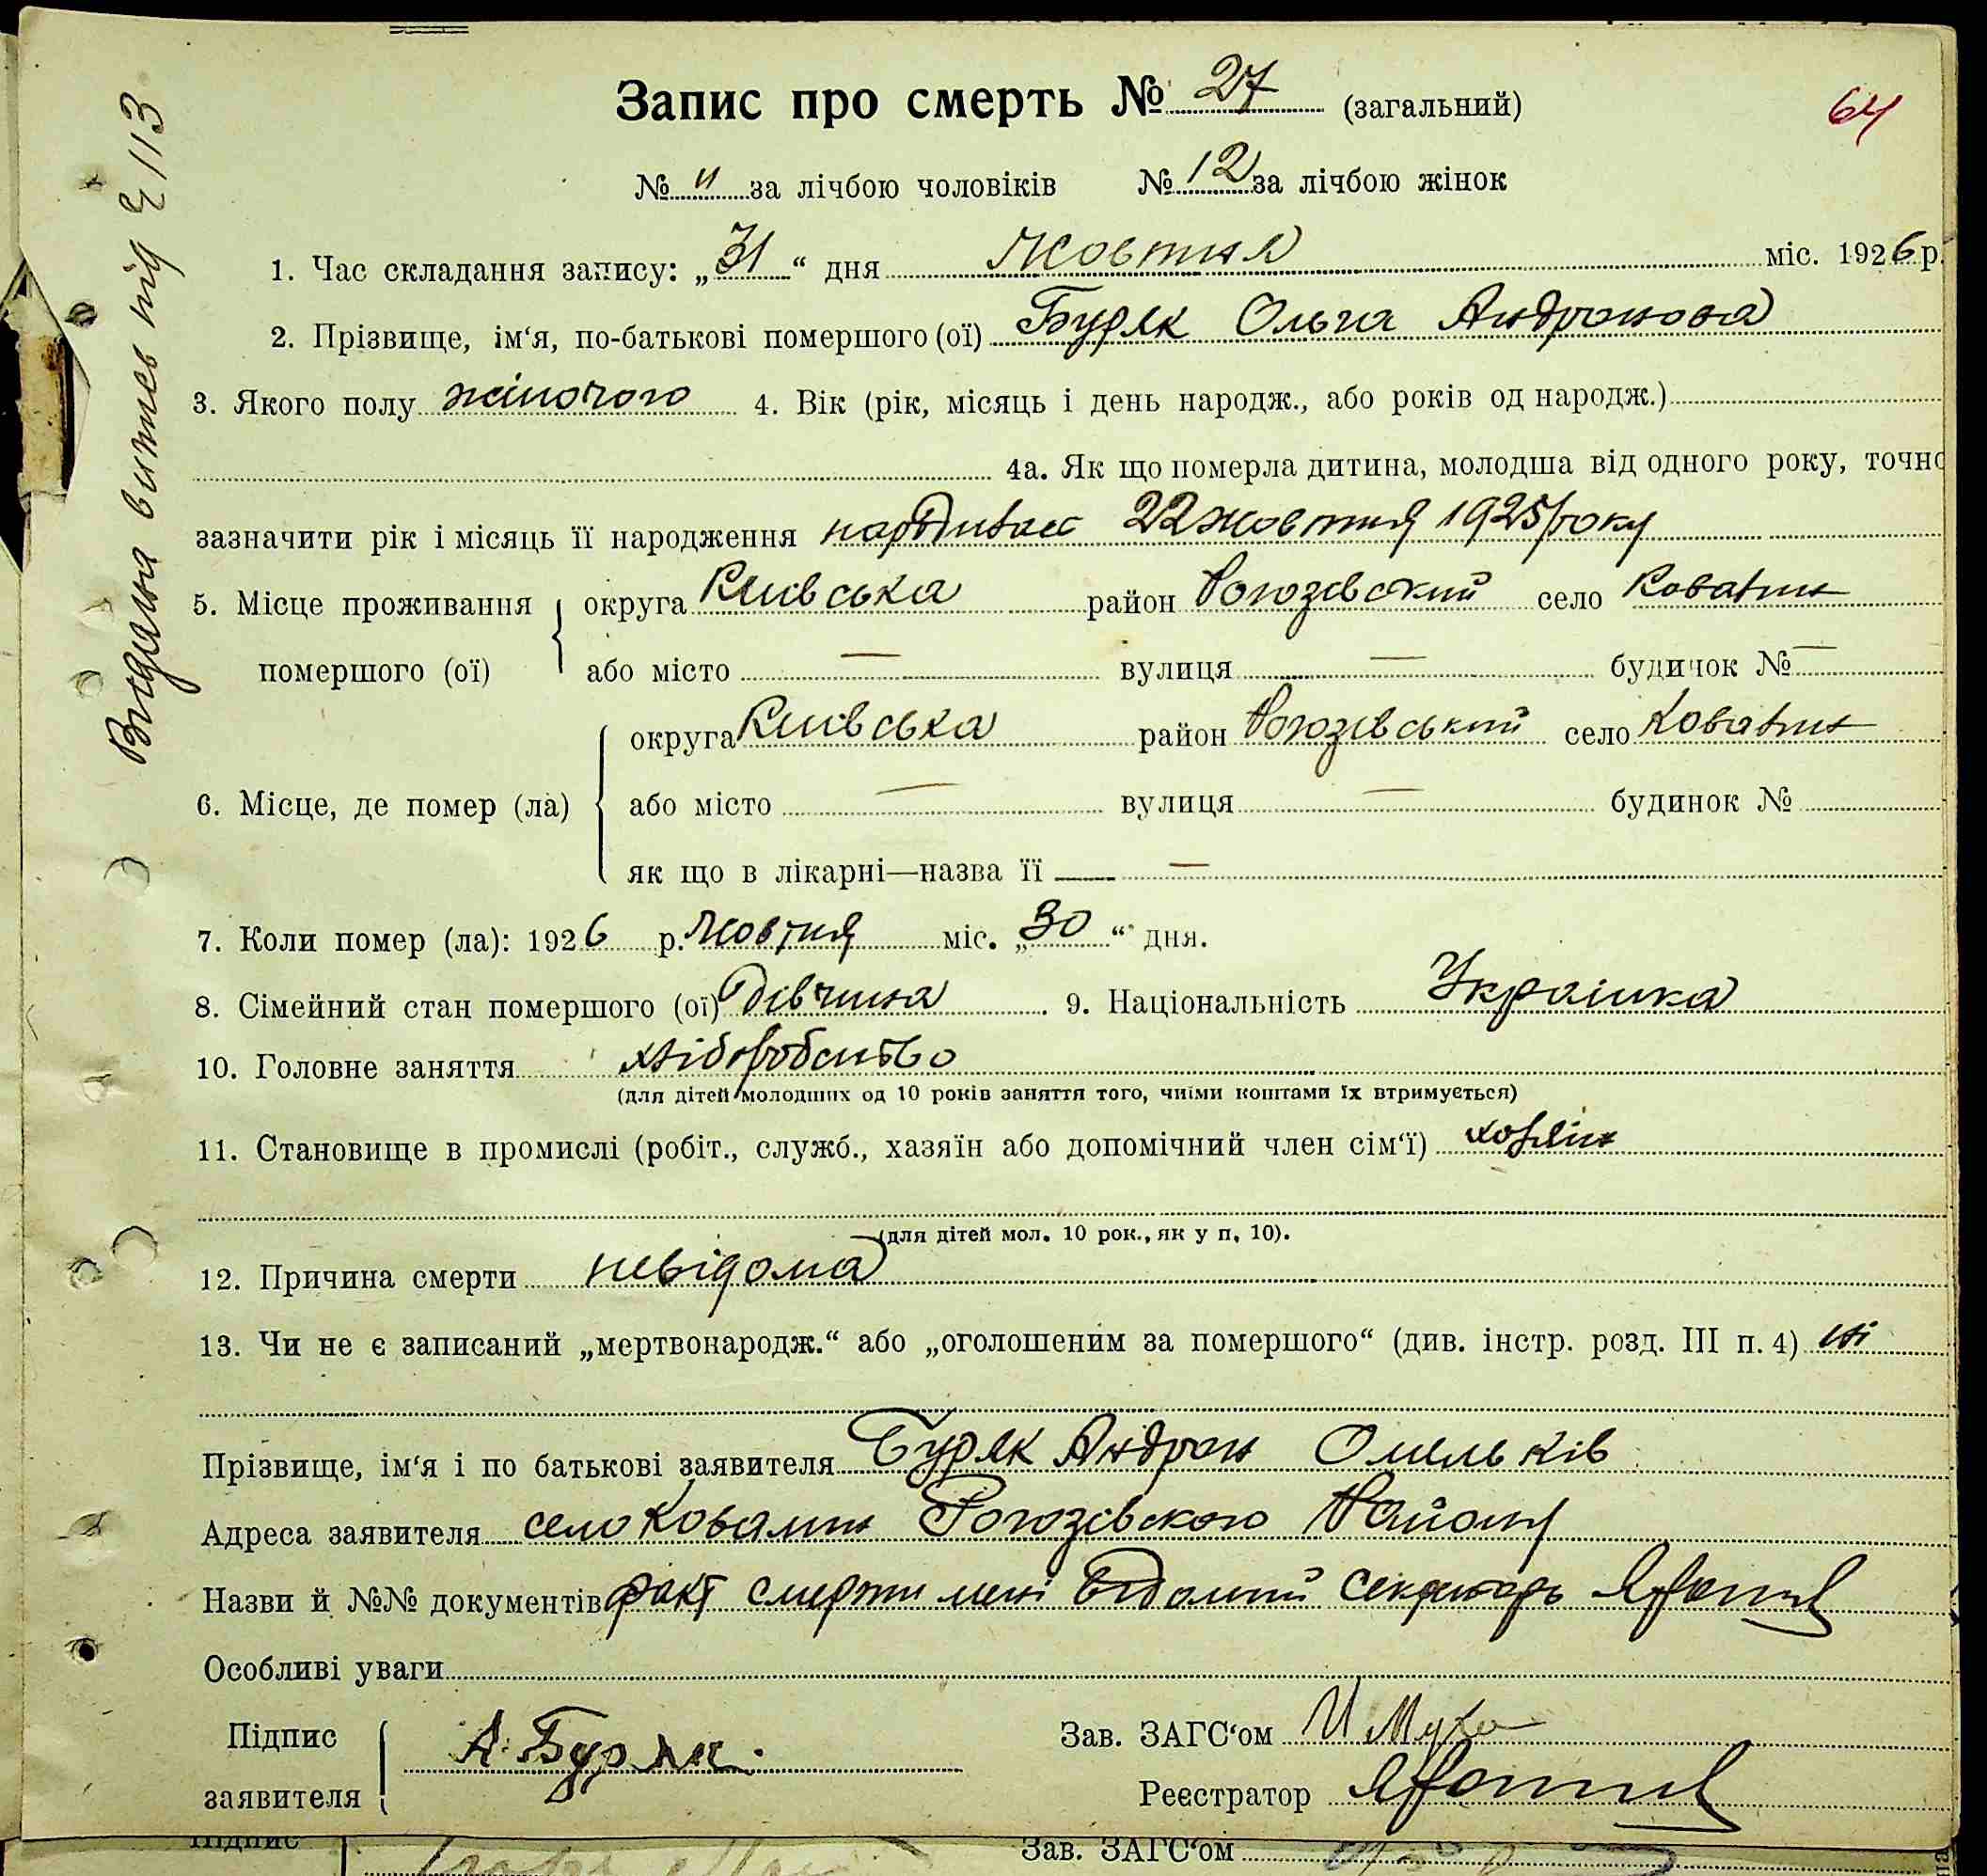 Запис про смерть № 27 (загальний)
64
№ " за лічбою чоловіків № 12 за лічбою жінок
1. Час складання запису: „31“ дня Жовтня міс. 1926 р.
2. Прізвище, ім‘я, по-батькові помершого (ої) Буряк Ольга Андронова
3. Якого полу жіночого 4. Вік (рік, місяць і день народж., або років од народж.)
4а. Як що померла дитина, молодша від одного року, точно
зазначити рік і місяць її народження 22 жовтня 1925 року
5. Місце проживання помершого (ої) округа Київська район Рогозівський село Ковалин
або місто — вулиця — будинок № —
6. Місце, де помер (ла) округа Київська район Рогозівський село Ковалин
або місто — вулиця — будинок №
як що в лікарні—назва її —
7. Коли помер (ла): 1926 р. Жовтня міс. „30“ дня.
8. Сімейний стан помершого (ої) дівчина . 9. Національність Українка
10. Головне заняття хліборобство
(для дітей молодших од 10 років заняття того, чиїми коштами їх втримується)
11. Становище в промислі (робіт., служб., хазяїн або допомічний член сім‘ї) хазяїн
(для дітей мол. 10 рок., як у п. 10).
12. Причина смерти невідома
13. Чи не є записаний „мертвонародж.“ або „оголошеним за помершого“ (див. інстр. розд. III п. 4) ні
Прізвище, ім‘я і по батькові заявителя Буряк Андрон Омельків
Адреса заявителя село Ковалин Рогозівського Району
Назви й №№ документів факт смерти мені відомий секретарь
Особливі уваги
Підпис заявителя А. Буряк.
Зав. ЗАГС‘ом И Муха
Реєстратор
Видана витяг під № 113
Підпис
Зав. ЗАГС‘ом